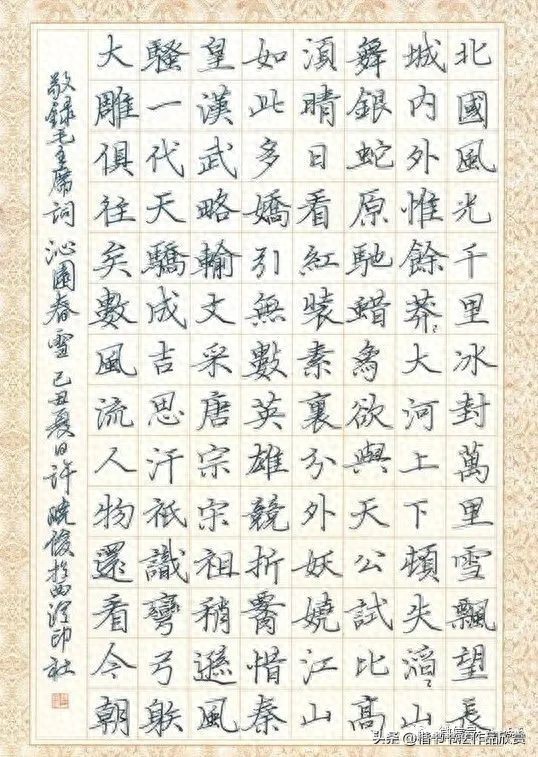 北國風光千里冰封萬里雪飄望長
城內外惟餘莽〻大河上下頓失滔〻山
舞銀蛇原馳蜡象欲與天公試比高
須晴日看紅裝素裹分外妖嬈江山
如此多嬌引無數英雄競折腰惜秦
皇漢武略輸文采唐宗宋祖稍遜風
騷一代天驕成吉思汗祇識彎弓䠶
大雕俱往矣數風流人物還看今朝
敬録毛主席詞 沁園春雪 己丑夏日許曉俊於西泠印社
头条 @楷书书法作品欣赏